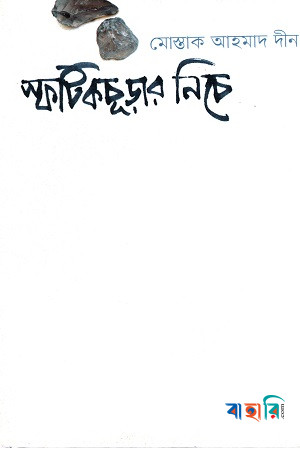 মোস্তাক আহমাদ দীন
স্ফটিকচূড়ার নিচে
বাহারি.com